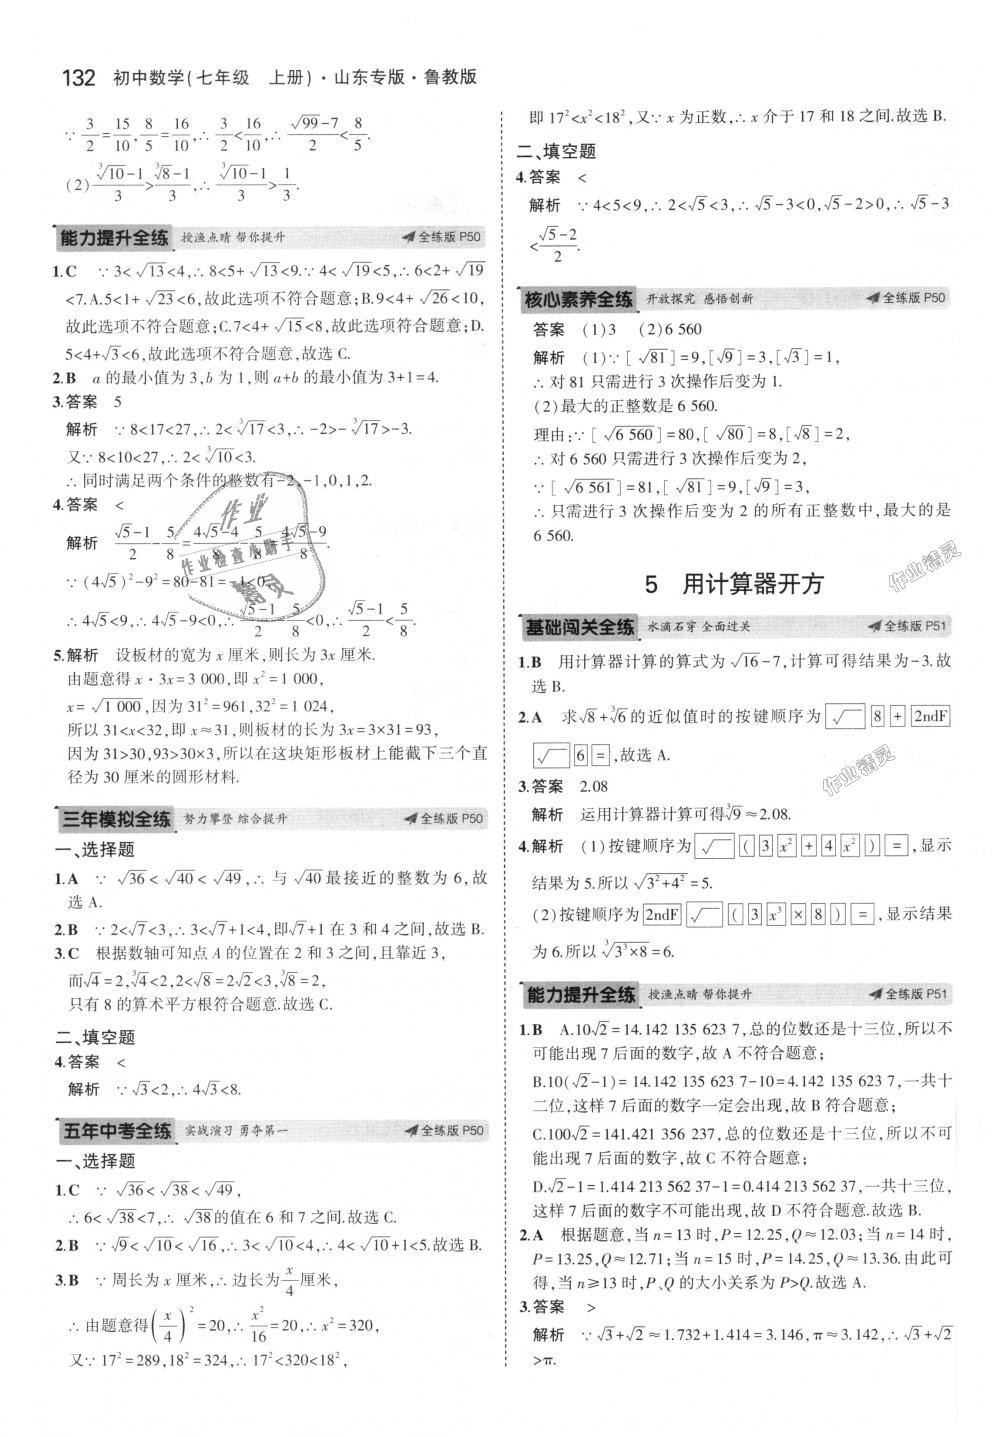 132 初中数学(七年级 上册)·山东专版·鲁教版
∵ 3/2=15/10, 8/5=16/10, ∴ 3/2<16/10, ∴ (√99-7)/2<8/5.
(2) (∛10-1)/3>(∛8-1)/3, ∴ (∛10-1)/3>1/3.
能力提升全练 授渔点睛 帮你提升 全练版 P50
1.C ∵ 3<√13<4,∴ 8<5+√13<9.∵ 4<√19<5,∴ 6<2+√19
<7.A.5<1+√23<6,故此选项不符合题意;B.9<4+√26<10,
故此选项不符合题意;C.7<4+√15<8,故此选项符合题意;D.
5<4+√3<6,故此选项不符合题意,故选 C.
2.B a 的最小值为 3,b 为 1,则 a+b 的最小值为 3+1=4.
3.答案 5
解析 ∵ 8<17<27,∴ 2<∛17<3,∴ -2>-∛17>-3.
又∵ 8<10<27,∴ 2<∛10<3.
∴ 同时满足两个条件的整数有-2,-1,0,1,2.
4.答案 <
解析 (√5-1)/2-5/8=(4√5-4)/8-5/8=(4√5-9)/8.
∵ (4√5)²-9²=80-81=-1<0,
∴ 4√5<9,∴ 4√5-9<0,∴ (√5-1)/2-5/8<0,∴ (√5-1)/2<5/8.
5.解析 设板材的宽为 x 厘米,则长为 3x 厘米.
由题意得 x·3x=3 000,即 x²=1 000,
x=√1 000,因为 31²=961,32²=1 024,
所以 31<x<32,即 x≈31,则板材的长为 3x=3×31=93,
因为 31>30,93>30×3,所以在这块矩形板材上能截下三个直
径为 30 厘米的圆形材料.
三年模拟全练 努力攀登 综合提升 全练版 P50
一、选择题
1.A ∵ √36<√40<√49,∴ 与√40最接近的整数为 6,故
选 A.
2.B ∵ 2<√7<3,∴ 3<√7+1<4,即√7+1 在 3 和 4 之间,故选 B.
3.C 根据数轴可知点 A 的位置在 2 和 3 之间,且靠近 3,
而√4=2,∛4<2,2<√8=2√2<3,∛8=2,
只有 8 的算术平方根符合题意.故选 C.
二、填空题
4.答案 <
解析 ∵ √3<2,∴ 4√3<8.
五年中考全练 实战演习 勇夺第一 全练版 P50
一、选择题
1.C ∵ √36<√38<√49,
∴ 6<√38<7,∴ √38的值在 6 和 7 之间.故选 C.
2.B ∵ √9<√10<√16,∴ 3<√10<4,∴ 4<√10+1<5.故选 B.
3.B ∵ 周长为 x 厘米,∴ 边长为x/4厘米,
∴ 由题意得(x/4)²=20,∴ x²/16=20,∴ x²=320,
又∵ 17²=289,18²=324,∴ 17²<320<18²,
即 17²<x²<18²,又∵ x 为正数,∴ x 介于 17 和 18 之间.故选 B.
二、填空题
4.答案 <
解析 ∵ 4<5<9,∴ 2<√5<3,∴ √5-3<0,√5-2>0,∴ √5-3
<(√5-2)/2.
核心素养全练 开放探究 感悟创新 全练版 P50
答案 (1)3 (2)6 560
解析 (1)∵ [√81]=9,[√9]=3,[√3]=1,
∴ 对 81 只需进行 3 次操作后变为 1.
(2)最大的正整数是 6 560.
理由:∵ [√6 560]=80,[√80]=8,[√8]=2,
∴ 对 6 560 只需进行 3 次操作后变为 2,
∵ [√6 561]=81,[√81]=9,[√9]=3,
∴ 只需进行 3 次操作后变为 2 的所有正整数中,最大的是
6 560.
5 用计算器开方
基础闯关全练 水滴石穿 全面过关 全练版 P51
1.B 用计算器计算的算式为√16-7,计算可得结果为-3.故
选 B.
2.A 求√8+∛6的近似值时的按键顺序为 √ 8 + 2ndF
√ 6 = ,故选 A.
3.答案 2.08
解析 运用计算器计算可得∛9≈2.08.
4.解析 (1)按键顺序为 √ ( 3 x² + 4 x² ) = ,显示
结果为 5.所以√(3²+4²)=5.
(2)按键顺序为 2ndF √ ( 3 x³ × 8 ) = ,显示结果
为 6.所以∛(3³×8)=6.
能力提升全练 授渔点睛 帮你提升 全练版 P51
1.B A.10√2=14.142 135 623 7,总的位数还是十三位,所以不
可能出现 7 后面的数字,故 A 不符合题意;
B.10(√2-1)=14.142 135 623 7-10=4.142 135 623 7,一共十
二位,这样 7 后面的数字一定会出现,故 B 符合题意;
C.100√2=141.421 356 237,总的位数还是十三位,所以不可
能出现 7 后面的数字,故 C 不符合题意;
D.√2-1=1.414 213 562 37-1=0.414 213 562 37,一共十三位,
这样 7 后面的数字不可能出现,故 D 不符合题意.故选 B.
2.A 根据题意,当 n=13 时,P=12.25,Q≈12.03;当 n=14 时,
P=13.25,Q≈12.71;当 n=15 时,P=14.25,Q≈13.36.由此可
得,当 n≥13 时,P、Q 的大小关系为 P>Q.故选 A.
3.答案 >
解析 ∵ √3+√2≈1.732+1.414=3.146,π≈3.142,∴ √3+√2
>π.
作业
作业检查小助手
精灵
作业精灵
作业精灵